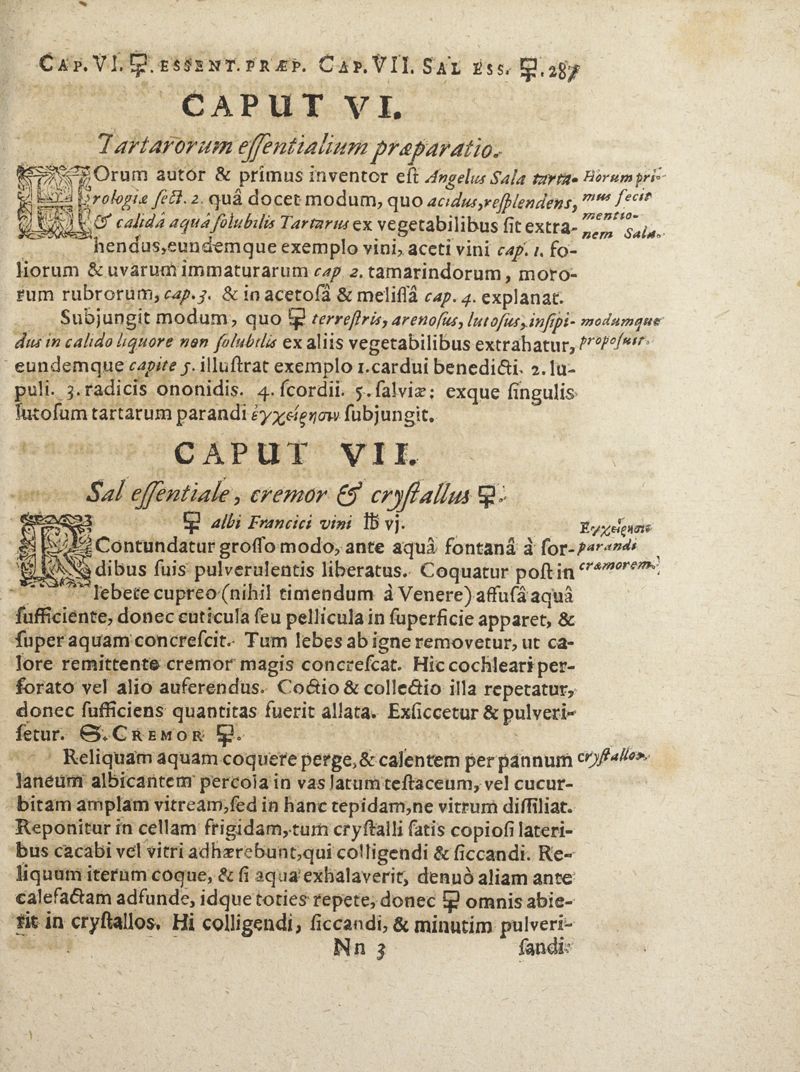 CAP. VI. 🜿. ESSENT. PRÆP. CAP. VII. SAL ESS. 🜿. 287
CAPUT VI.
Tartarorum eſſentialium præparatio.
HOrum autor & primus inventor eſt Angelus Sala tarta-
rologiæ ſect. 2. quâ docet modum, quo acidus, reſplendens,
& calidâ aquâ ſolubilis Tartarus ex vegetabilibus fit extra-
hendus, eundemque exemplo vini, aceti vini cap. 1. fo-
liorum & uvarum immaturarum cap 2. tamarindorum, moro-
rum rubrorum, cap. 3. & in acetoſâ & meliſſâ cap. 4. explanat.
Horum pri-
mus fecit
mentio-
nem Sala.
Subjungit modum, quo 🜿 terreſtris, arenoſus, lutoſus, inſipi-
dus in calido liquore non ſolubilis ex aliis vegetabilibus extrahatur,
eundemque capite 5. illuſtrat exemplo 1. cardui benedicti. 2. lu-
puli. 3. radicis ononidis. 4. ſcordii. 5. ſalviæ: exque ſingulis
lutoſum tartarum parandi ἐγχείρησιν ſubjungit.
modumque
propoſuit.
CAPUT VII.
Sal eſſentiale, cremor & cryſtallus 🜿.
🜿 albi Francici vini ℔ vj.
Contundatur groſſo modo, ante aquâ fontanâ à ſor-
dibus ſuis pulverulentis liberatus. Coquatur poſt in
lebete cupreo (nihil timendum à Venere) affuſâ aquâ
ſufficiente, donec cuticula ſeu pellicula in ſuperficie apparet, &
ſuper aquam concreſcit. Tum lebes ab igne removetur, ut ca-
lore remittente cremor magis concreſcat. Hic cochleari per-
forato vel alio auferendus. Coctio & collectio illa repetatur,
donec ſufficiens quantitas fuerit allata. Exſiccetur & pulveri-
ſetur. 🜔. CREMOR 🜿.
Ἐγχείρησις
parandi
cremorem.
Reliquam aquam coquere perge, & calentem per pannum
laneum albicantem percola in vas latum teſtaceum, vel cucur-
bitam amplam vitream, ſed in hanc tepidam, ne vitrum diſſiliat.
Reponitur in cellam frigidam, tum cryſtalli ſatis copioſi lateri-
bus cacabi vel vitri adhærebunt, qui colligendi & ſiccandi. Re-
liquum iterum coque, & ſi aqua exhalaverit, denuò aliam ante
calefactam adfunde, idque toties repete, donec 🜿 omnis abie-
rit in cryſtallos. Hi colligendi, ſiccandi, & minutim pulveri-
cryſtallos.
Nn 3 ſandi: